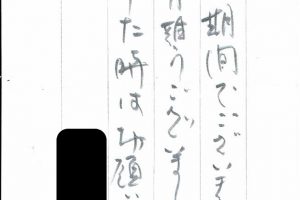 期間でございま
難うございまし
た時はお願い